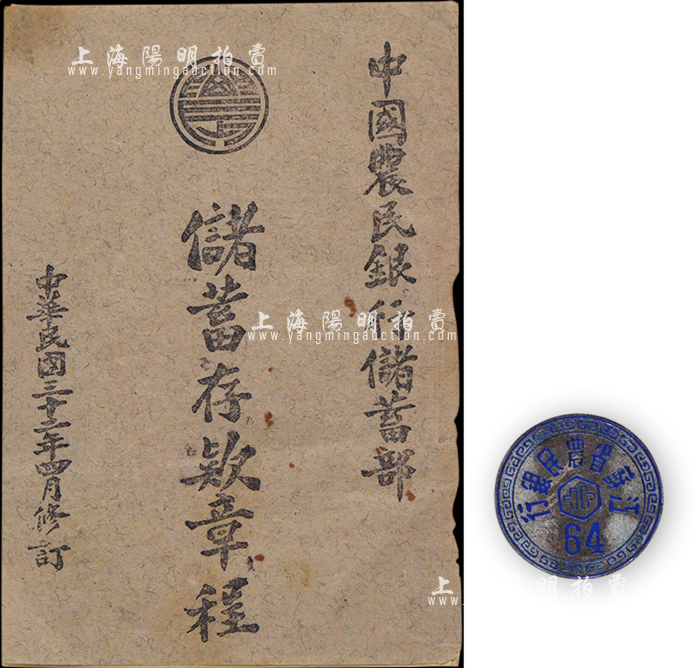 上海陽明拍賣
www.yangmingauction.com
中國農民銀行儲蓄部
儲蓄存款章程
中華民國三十二年四月修訂
上海陽明拍賣
www.yangmingauction.com
江蘇省農民銀行
64
上海陽明拍賣
www.yangmingauction.com